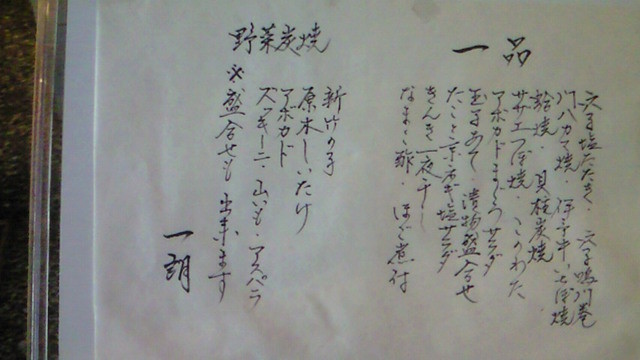 一品
穴子塩たたき・穴子鳴門巻
川ハカマ焼・伊予牛いそべ焼
蛤焼・貝柱炭焼
サザエつぼ焼・このわた
アホカドまぐろサラダ
玉子あて・漬物盛合せ
たこと京ネギ塩サラダ
きんき一夜干し
なまこ酢・ほご煮付
野菜炭焼
新竹の子
原木しいたけ
アホカド
ズッキーニ・山いも・アスパラ
※盛合せも出来ます
一朗